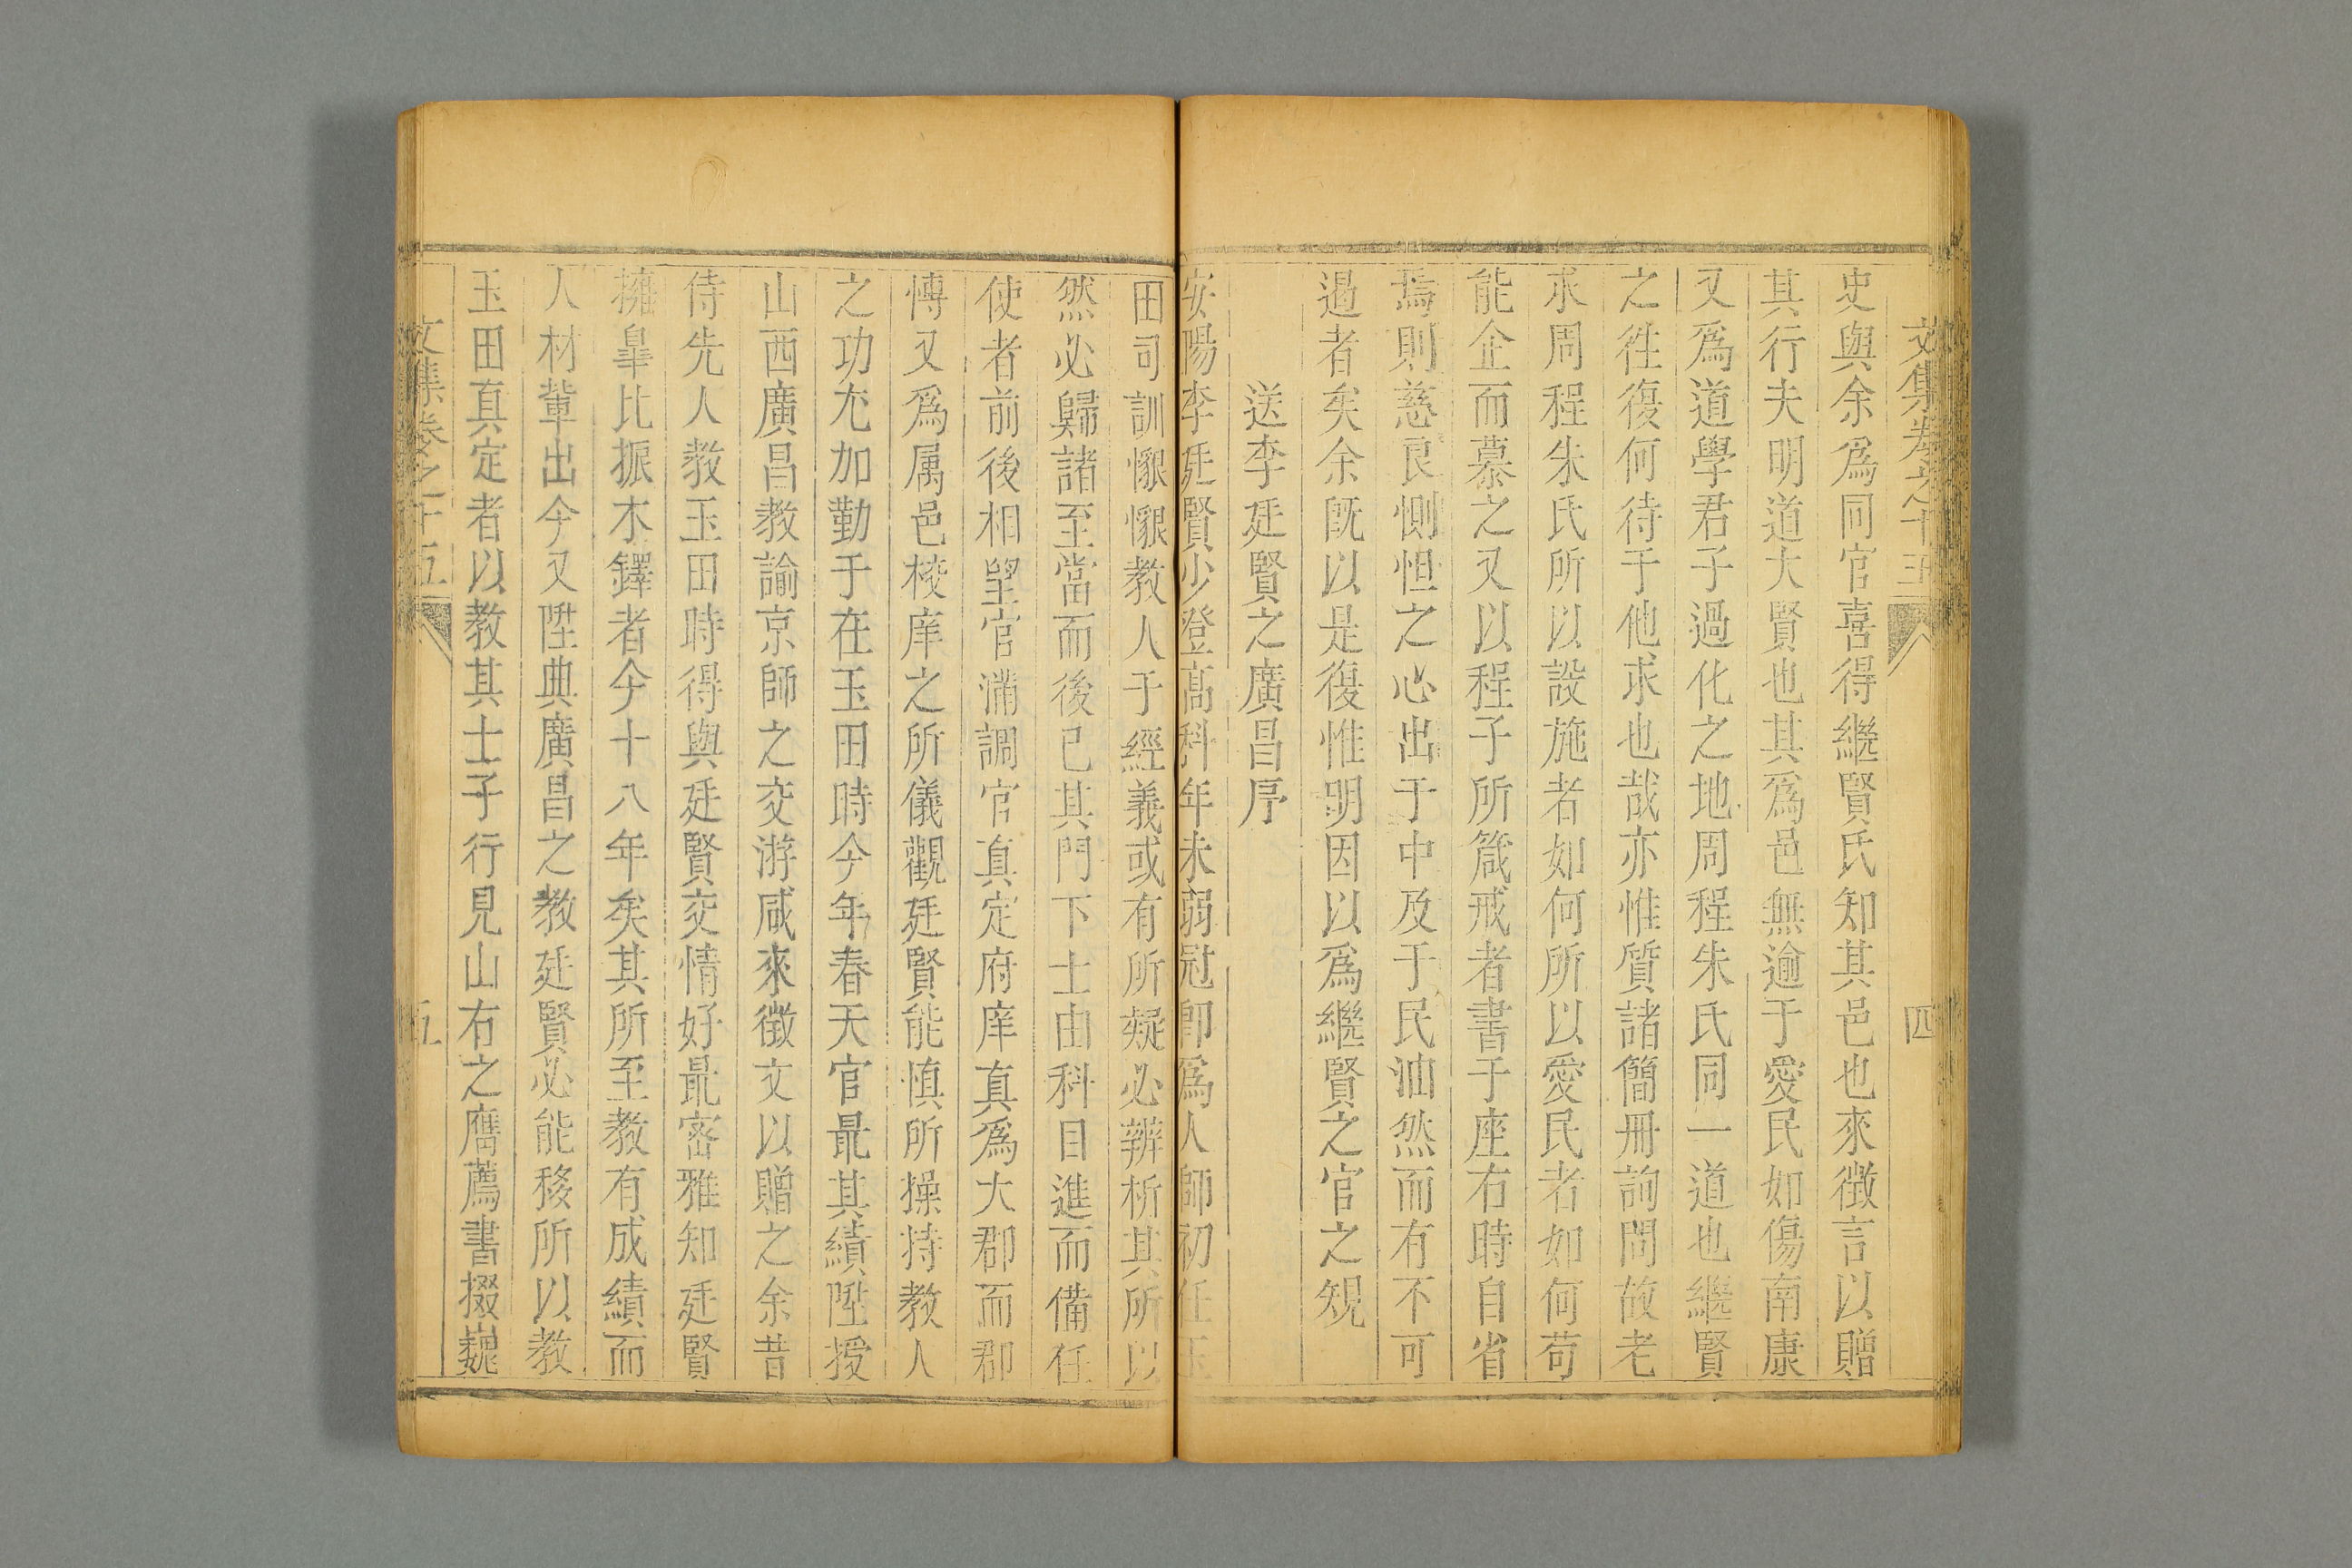 文集卷之十五
四
史與余爲同官喜得繼賢氏知其邑也來徵言以贈
其行夫明道大賢也其爲邑無逾于愛民如傷南康
又爲道學君子過化之地周程朱氏同一道也繼賢
之徃復何待于他求也哉亦惟質諸簡冊詢問故老
求周程朱氏所以設施者如何所以愛民者如何苟
能企而慕之又以程子所箴戒者書于座右時自省
焉則慈良惻怛之心出于中及于民油然而有不可
遏者矣余旣以是復惟明因以爲繼賢之官之規
送李廷賢之廣昌序
安陽李廷賢少登髙科年未弱冠卽爲人師初任玉
田司訓懇懇教人于經義或有所疑必辨析其所以
然必歸諸至當而後已其門下士由科目進而備任
使者前後相望官滿調官真定府庠真爲大郡而郡
慱又爲属邑校庠之所儀觀廷賢能慎所操持教人
之功尤加勤于在玉田時今年春天官最其績陞授
山西廣昌教諭京師之交游咸來徵文以贈之余昔
侍先人教玉田時得與廷賢交情好最密雅知廷賢
擁皐比振木鐸者今十八年矣其所至教有成績而
人材輩出今又陞典廣昌之教廷賢必能移所以教
玉田真定者以教其士子行見山右之膺薦書掇巍
文集卷之十五
五